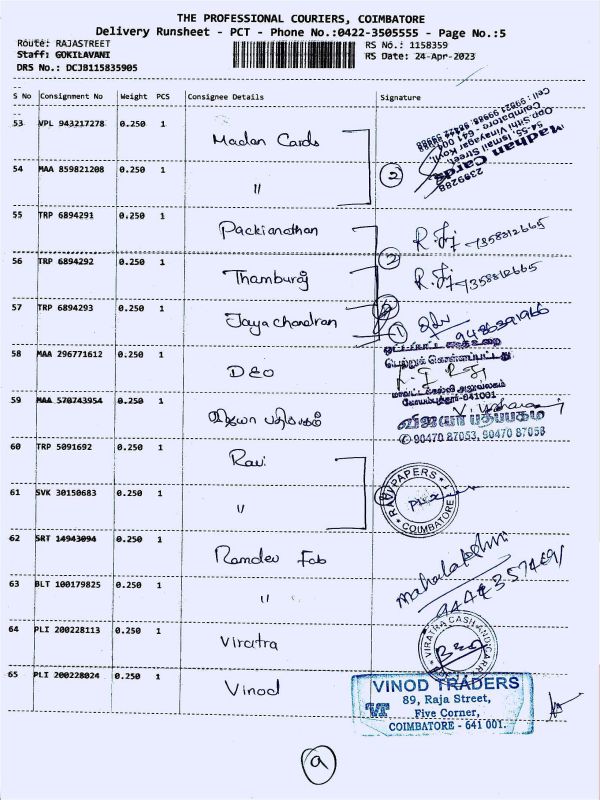 THE PROFESSIONAL COURIERS, COIMBATORE
Delivery Runsheet - PCT - Phone No.:0422-3505555 - Page No.:5
Route: RAJASTREET RS No.: 1158359
Staff: GOKILAVANI RS Date: 24-Apr-2023
DRS No.: DCJB115835905
S No Consignment No Weight PCS Consignee Details Signature
53 VPL 943217278 0.250 1 Madan Cards
Madhan Cards
54-55, Ismail Street,
Opp.Sithi Vinayagar Kovil,
Coimbatore - 641 001
2399288
54 MAA 859821208 0.250 1 " 2
55 TRP 6894291 0.250 1 Packiandhan 7358312665
56 TRP 6894292 0.250 1 Thamburaj 7358312665
57 TRP 6894293 0.250 1 Jaya chandran 1 9486391966
58 MAA 296771612 0.250 1 DEO
பெற்றுக் கொள்ளப்பட்டது
மாவட்டக்கல்வி அலுவலகம்
கோயம்புத்தூர்-641001
59 MAA 570743954 0.250 1 விஜயா பதிப்பகம்
விஜயா பதிப்பகம்
90470 87053, 90470 87058
60 TRP 5091692 0.250 1 Ravi
RAVI PAPERS
COIMBATORE
61 SVK 30150683 0.250 1 "
62 SRT 14943094 0.250 1 Ramdev Fab
Mahalakshmi
63 BLT 100179825 0.250 1 "
64 PLI 200228113 0.250 1 Viratra
VIRATRA CASH AND CARRY
65 PLI 200228024 0.250 1 Vinod
VINOD TRADERS
VT 89, Raja Street,
Five Corner,
COIMBATORE - 641 001.
a